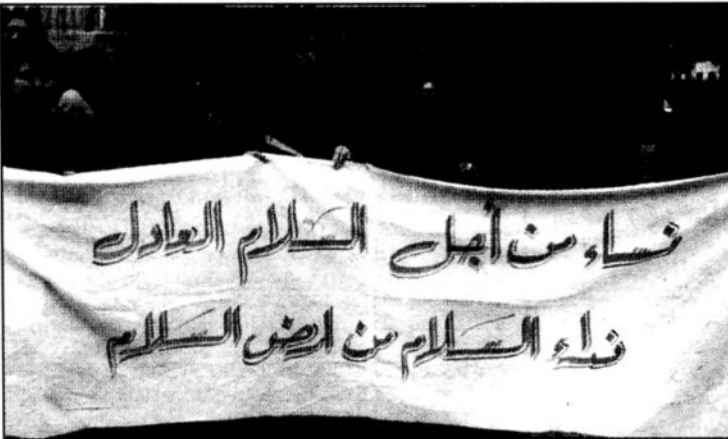 نساء من أجل السلام العادل
نداء السلام من ارض السلام